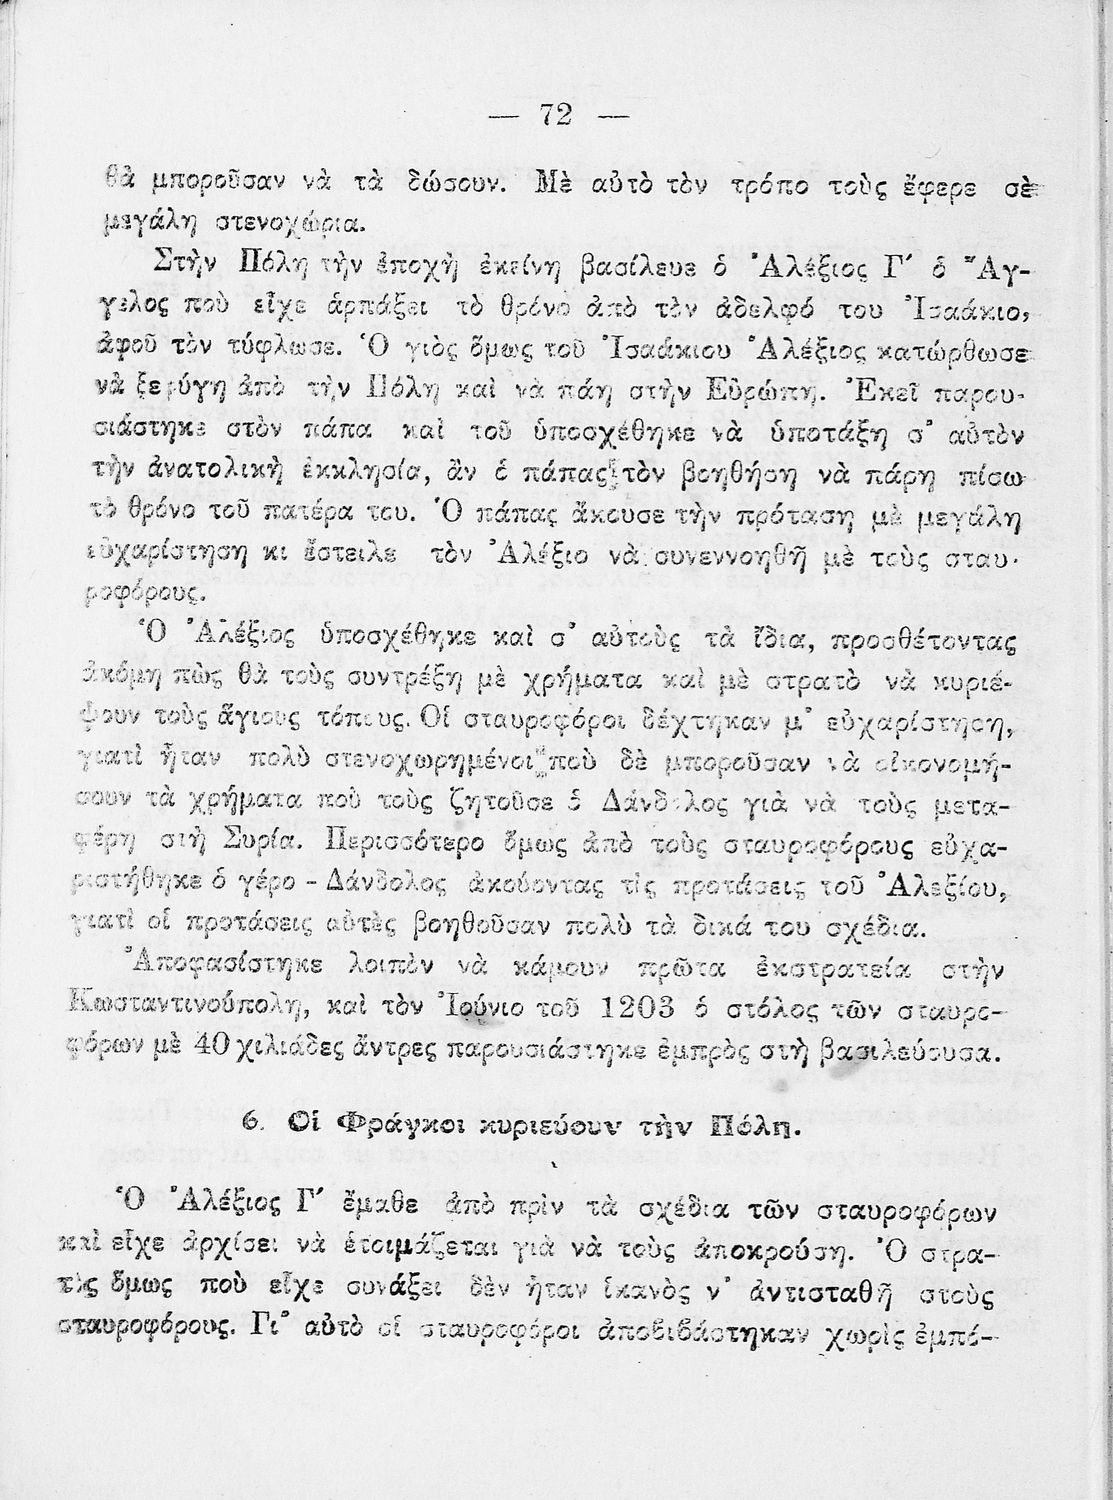 — 72 —
θὰ μποροῦσαν νὰ τὰ δώσουν. Μὲ αὐτὸ τὸν τρόπο τοὺς ἔφερε σὲ
μεγάλη στενοχώρια.
Στὴν Πόλη τὴν ἐποχὴ ἐκείνη βασίλευε ὁ Ἀλέξιος Γ′ ὁ Ἄγ-
γελος ποὺ εἶχε ἁρπάξει τὸ θρόνο ἀπὸ τὸν ἀδελφό του Ἰσαάκιο,
ἀφοῦ τὸν τύφλωσε. Ὁ γιὸς ὅμως τοῦ Ἰσαάκιου Ἀλέξιος κατώρθωσε
νὰ ξεφύγη ἀπὸ τὴν Πόλη καὶ νὰ πάη στὴν Εὐρώπη. Ἐκεῖ παρου-
σιάστηκε στὸν πάπα καὶ τοῦ ὑποσχέθηκε νὰ ὑποτάξη σ' αὐτὸν
τὴν ἀνατολικὴ ἐκκλησία, ἂν ὁ πάπας τὸν βοηθήση νὰ πάρη πίσω
τὸ θρόνο τοῦ πατέρα του. Ὁ πάπας ἄκουσε τὴν πρόταση μὲ μεγάλη
εὐχαρίστηση κι ἔστειλε τὸν Ἀλέξιο νὰ συνεννοηθῆ μὲ τοὺς σταυ-
ροφόρους.
Ὁ Ἀλέξιος ὑποσχέθηκε καὶ σ' αὐτοὺς τὰ ἴδια, προσθέτοντας
ἀκόμη πὼς θὰ τοὺς συντρέξη μὲ χρήματα καὶ μὲ στρατὸ νὰ κυριέ-
ψουν τοὺς ἅγιους τόπους. Οἱ σταυροφόροι δέχτηκαν μ' εὐχαρίστηση,
γιατὶ ἦταν πολὺ στενοχωρημένοι ποὺ δὲ μποροῦσαν νὰ οἰκονομή-
σουν τὰ χρήματα ποὺ τοὺς ζητοῦσε ὁ Δάνδολος γιὰ νὰ τοὺς μετα-
φέρη στὴ Συρία. Περισσότερο ὅμως ἀπὸ τοὺς σταυροφόρους εὐχα-
ριστήθηκε ὁ γέρο - Δάνδολος ἀκούοντας τὶς προτάσεις τοῦ Ἀλεξίου,
γιατὶ οἱ προτάσεις αὐτὲς βοηθοῦσαν πολὺ τὰ δικά του σχέδια.
Ἀποφασίστηκε λοιπὸν νὰ κάμουν πρῶτα ἐκστρατεία στὴν
Κωσταντινούπολη, καὶ τὸν Ἰούνιο τοῦ 1203 ὁ στόλος τῶν σταυρο-
φόρων μὲ 40 χιλιάδες ἄντρες παρουσιάστηκε ἐμπρὸς στὴ βασιλεύουσα.
6. Οἱ Φράγκοι κυριεύουν τὴν Πόλη.
Ὁ Ἀλέξιος Γ′ ἔμαθε ἀπὸ πρὶν τὰ σχέδια τῶν σταυροφόρων
καὶ εἶχε ἀρχίσει νὰ ἑτοιμάζεται γιὰ νὰ τοὺς ἀποκρούση. Ὁ στρα-
τὸς ὅμως ποὺ εἶχε συνάξει δὲν ἦταν ἱκανὸς ν' ἀντισταθῆ στοὺς
σταυροφόρους. Γι' αὐτὸ οἱ σταυροφόροι ἀποβιβάστηκαν χωρὶς ἐμπό-